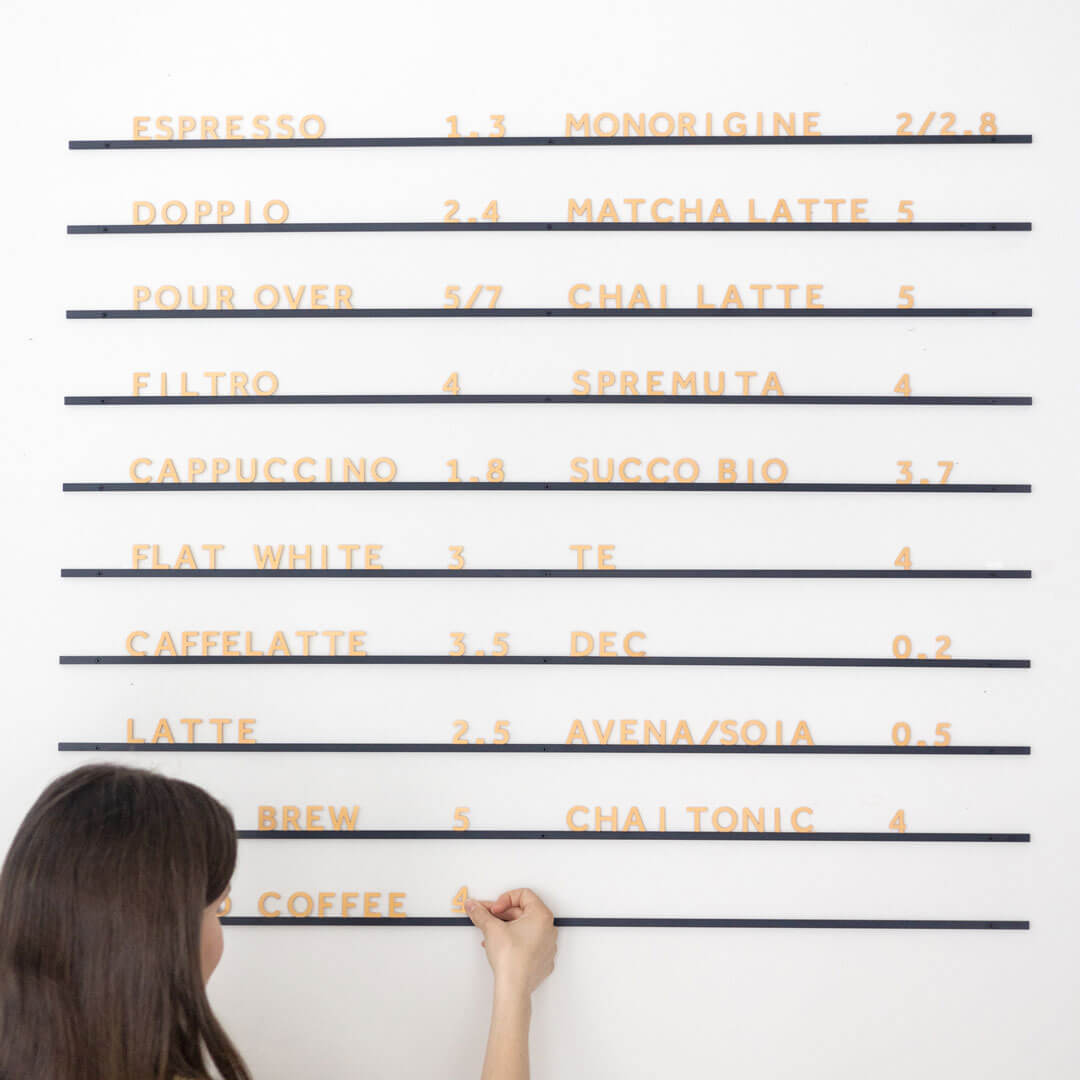 ESPRESSO 1.3 MONORIGINE 2/2.8
DOPPIO 2.4 MATCHA LATTE 5
POUR OVER 5/7 CHAI LATTE 5
FILTRO 4 SPREMUTA 4
CAPPUCCINO 1.8 SUCCO BIO 3.7
FLAT WHITE 3 TE 4
CAFFELATTE 3.5 DEC 0.2
LATTE 2.5 AVENA/SOIA 0.5
BREW 5 CHAI TONIC 4
COFFEE 4